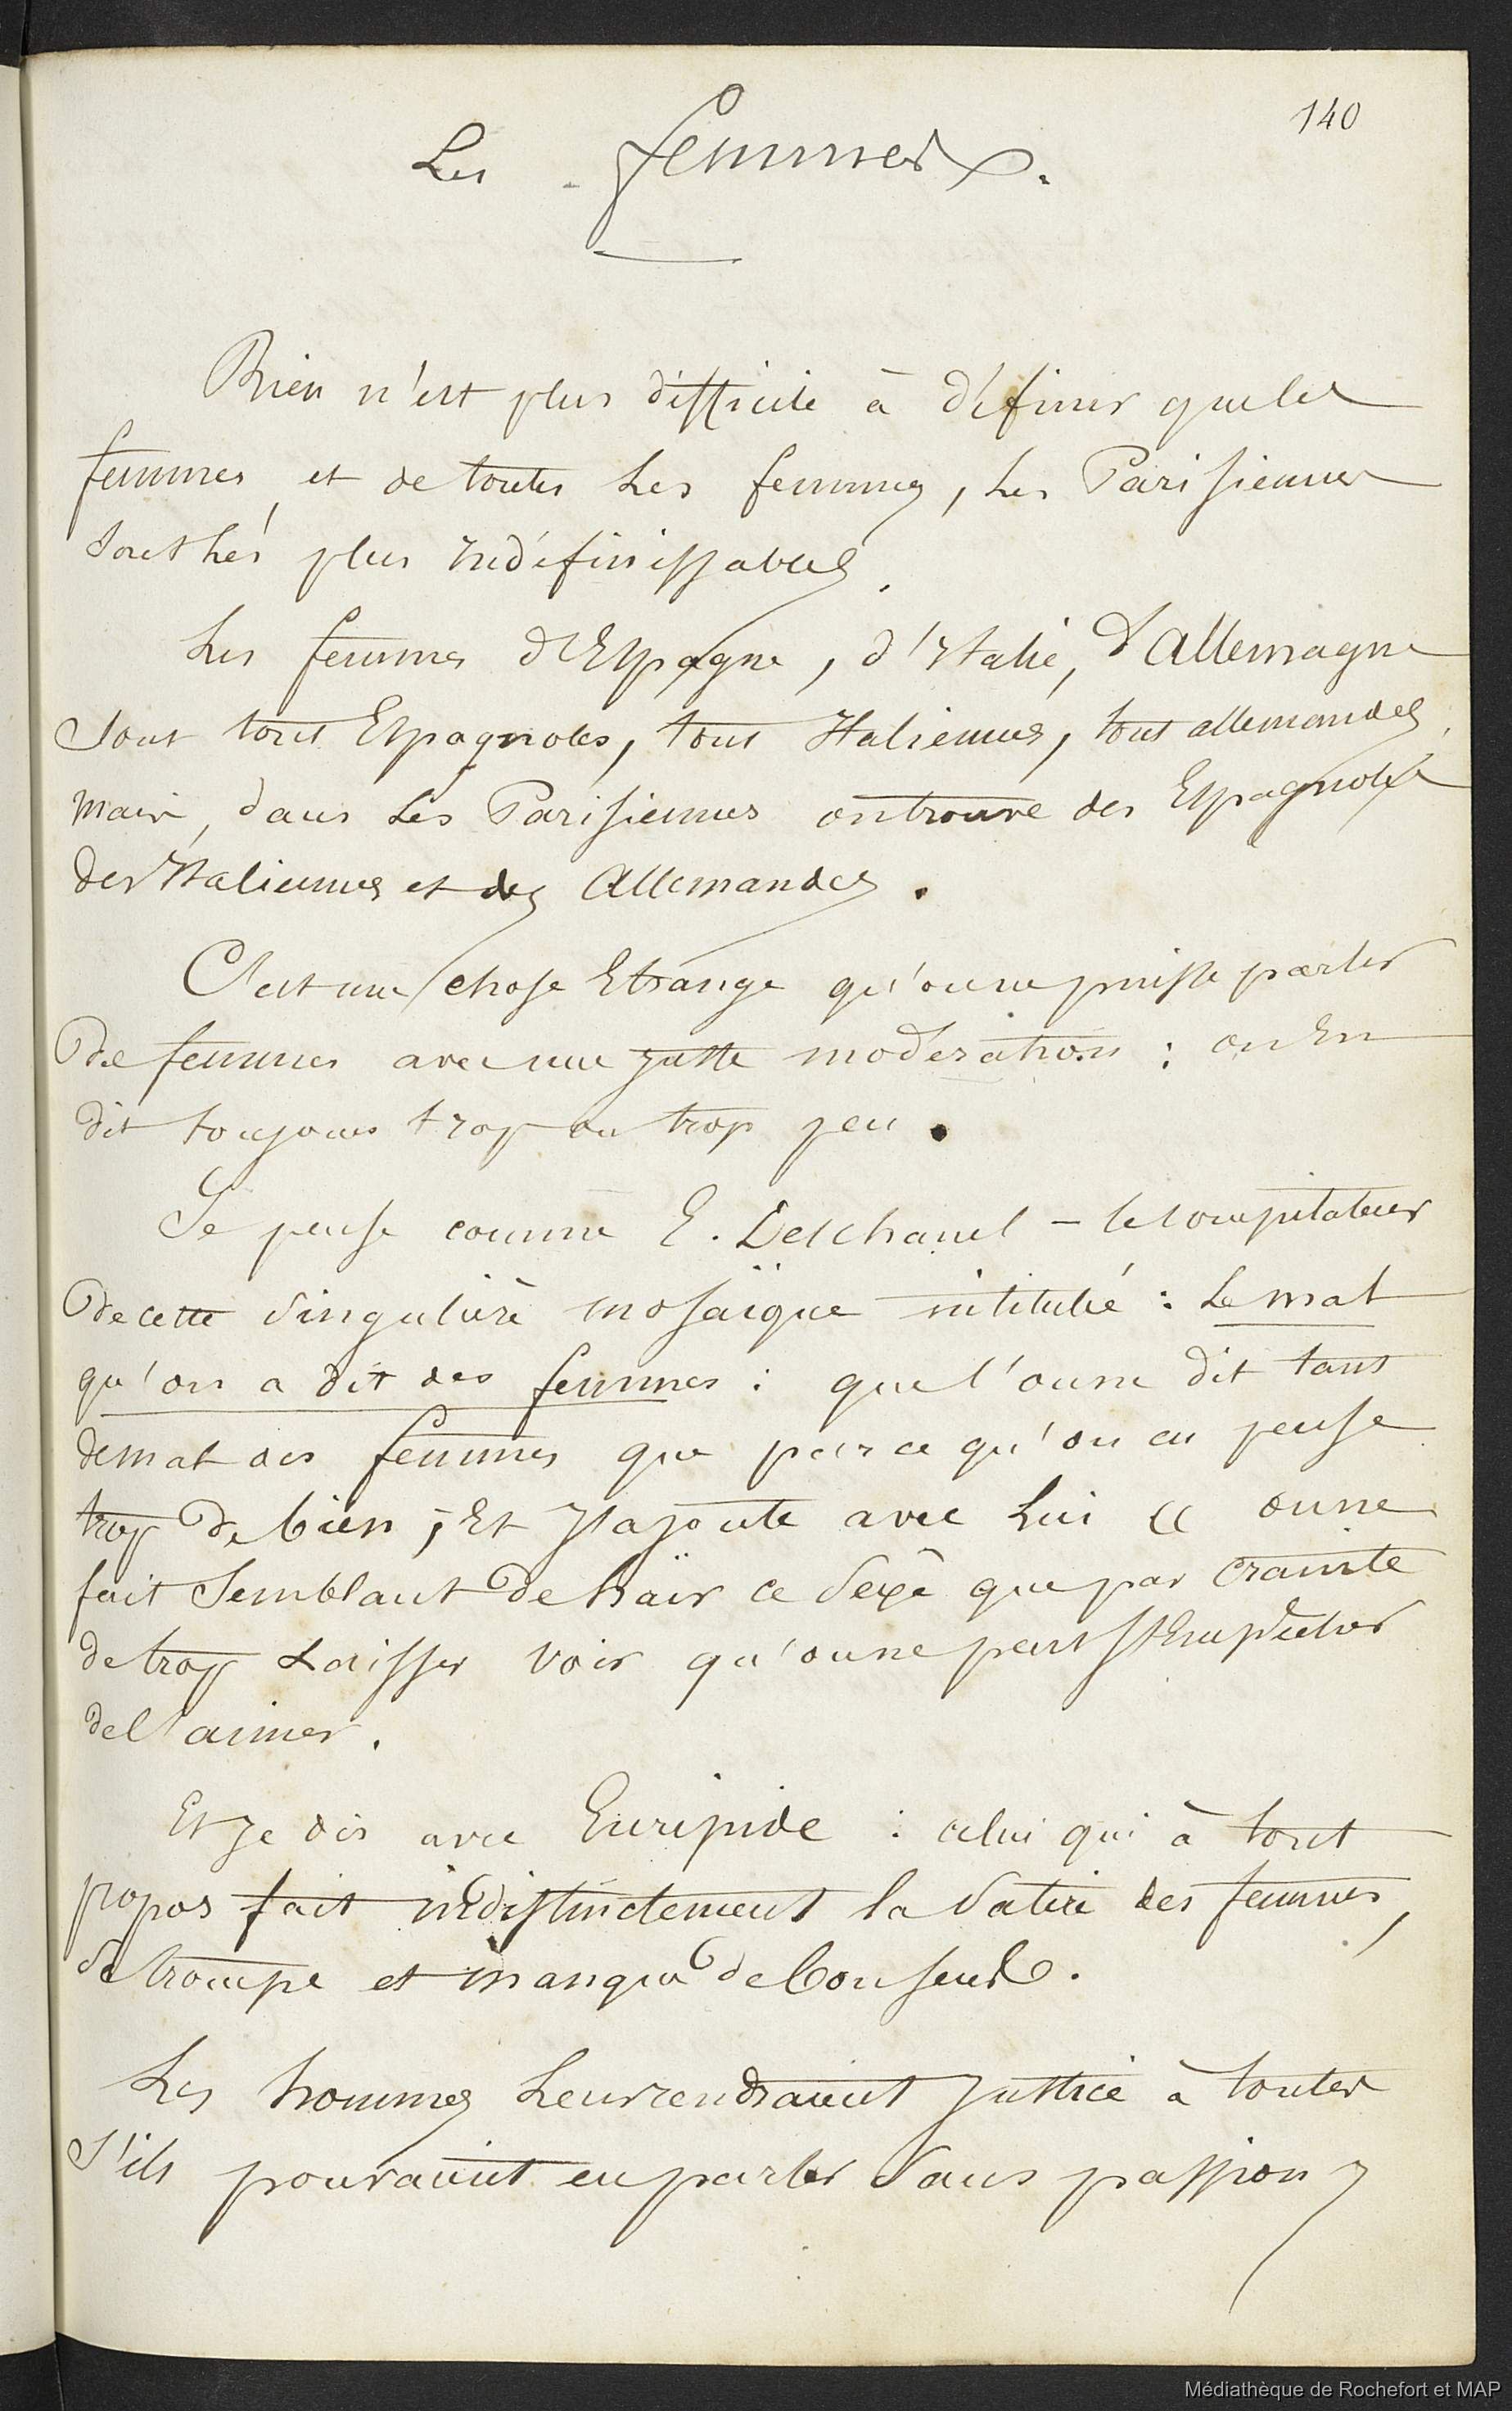 140
Les femmes.
Rien n'est plus difficile à définir que les
femmes, et de toutes les femmes, les Parisiennes
sont les plus indéfinissables.
Les femmes d'Espagne, d'Italie, d'Allemagne
sont tout Espagnoles, tout Italiennes, tout allemandes,
mais, dans les Parisiennes on trouve des Espagnoles
des Italiennes et des Allemandes.
C'est une chose Etrange qu'on ne puisse parler
de femmes avec une juste modération : on En
dit toujours trop ou trop peu.
Je pense comme E. Deschanel - le compilateur
de cette singulière mosaïque intitulée : Le mal
qu'on a dit des femmes : que l'on ne dit tant
de mal des femmes que parce qu'on en pense
trop de bien ; Et j'ajoute avec lui « on ne
fait semblant de haïr ce sexe que par crainte
de trop laisser voir qu'on ne peut s'Empêcher
de l'aimer.
Et je dis avec Euripide : celui qui à tout
propos fait indistinctement la satire des femmes,
se trompe et manque de bon sens.
Les hommes leur rendraient justice à toutes
s'ils pouvaient en parler sans passion ;
Médiathèque de Rochefort et MAP